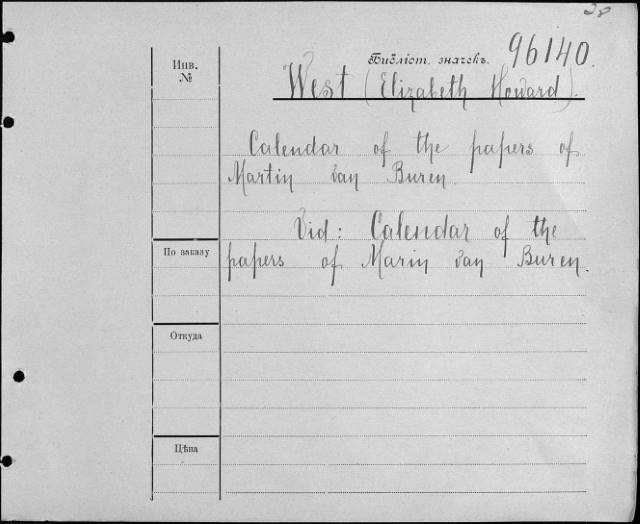 20
Библіот. значекъ. 96140.
Инв. №
West (Elizabeth Howard).
Calendar of the papers of
Martin van Buren
Vid: Calendar of the
papers of Marin van Buren.
По заказу
Откуда
Цѣна